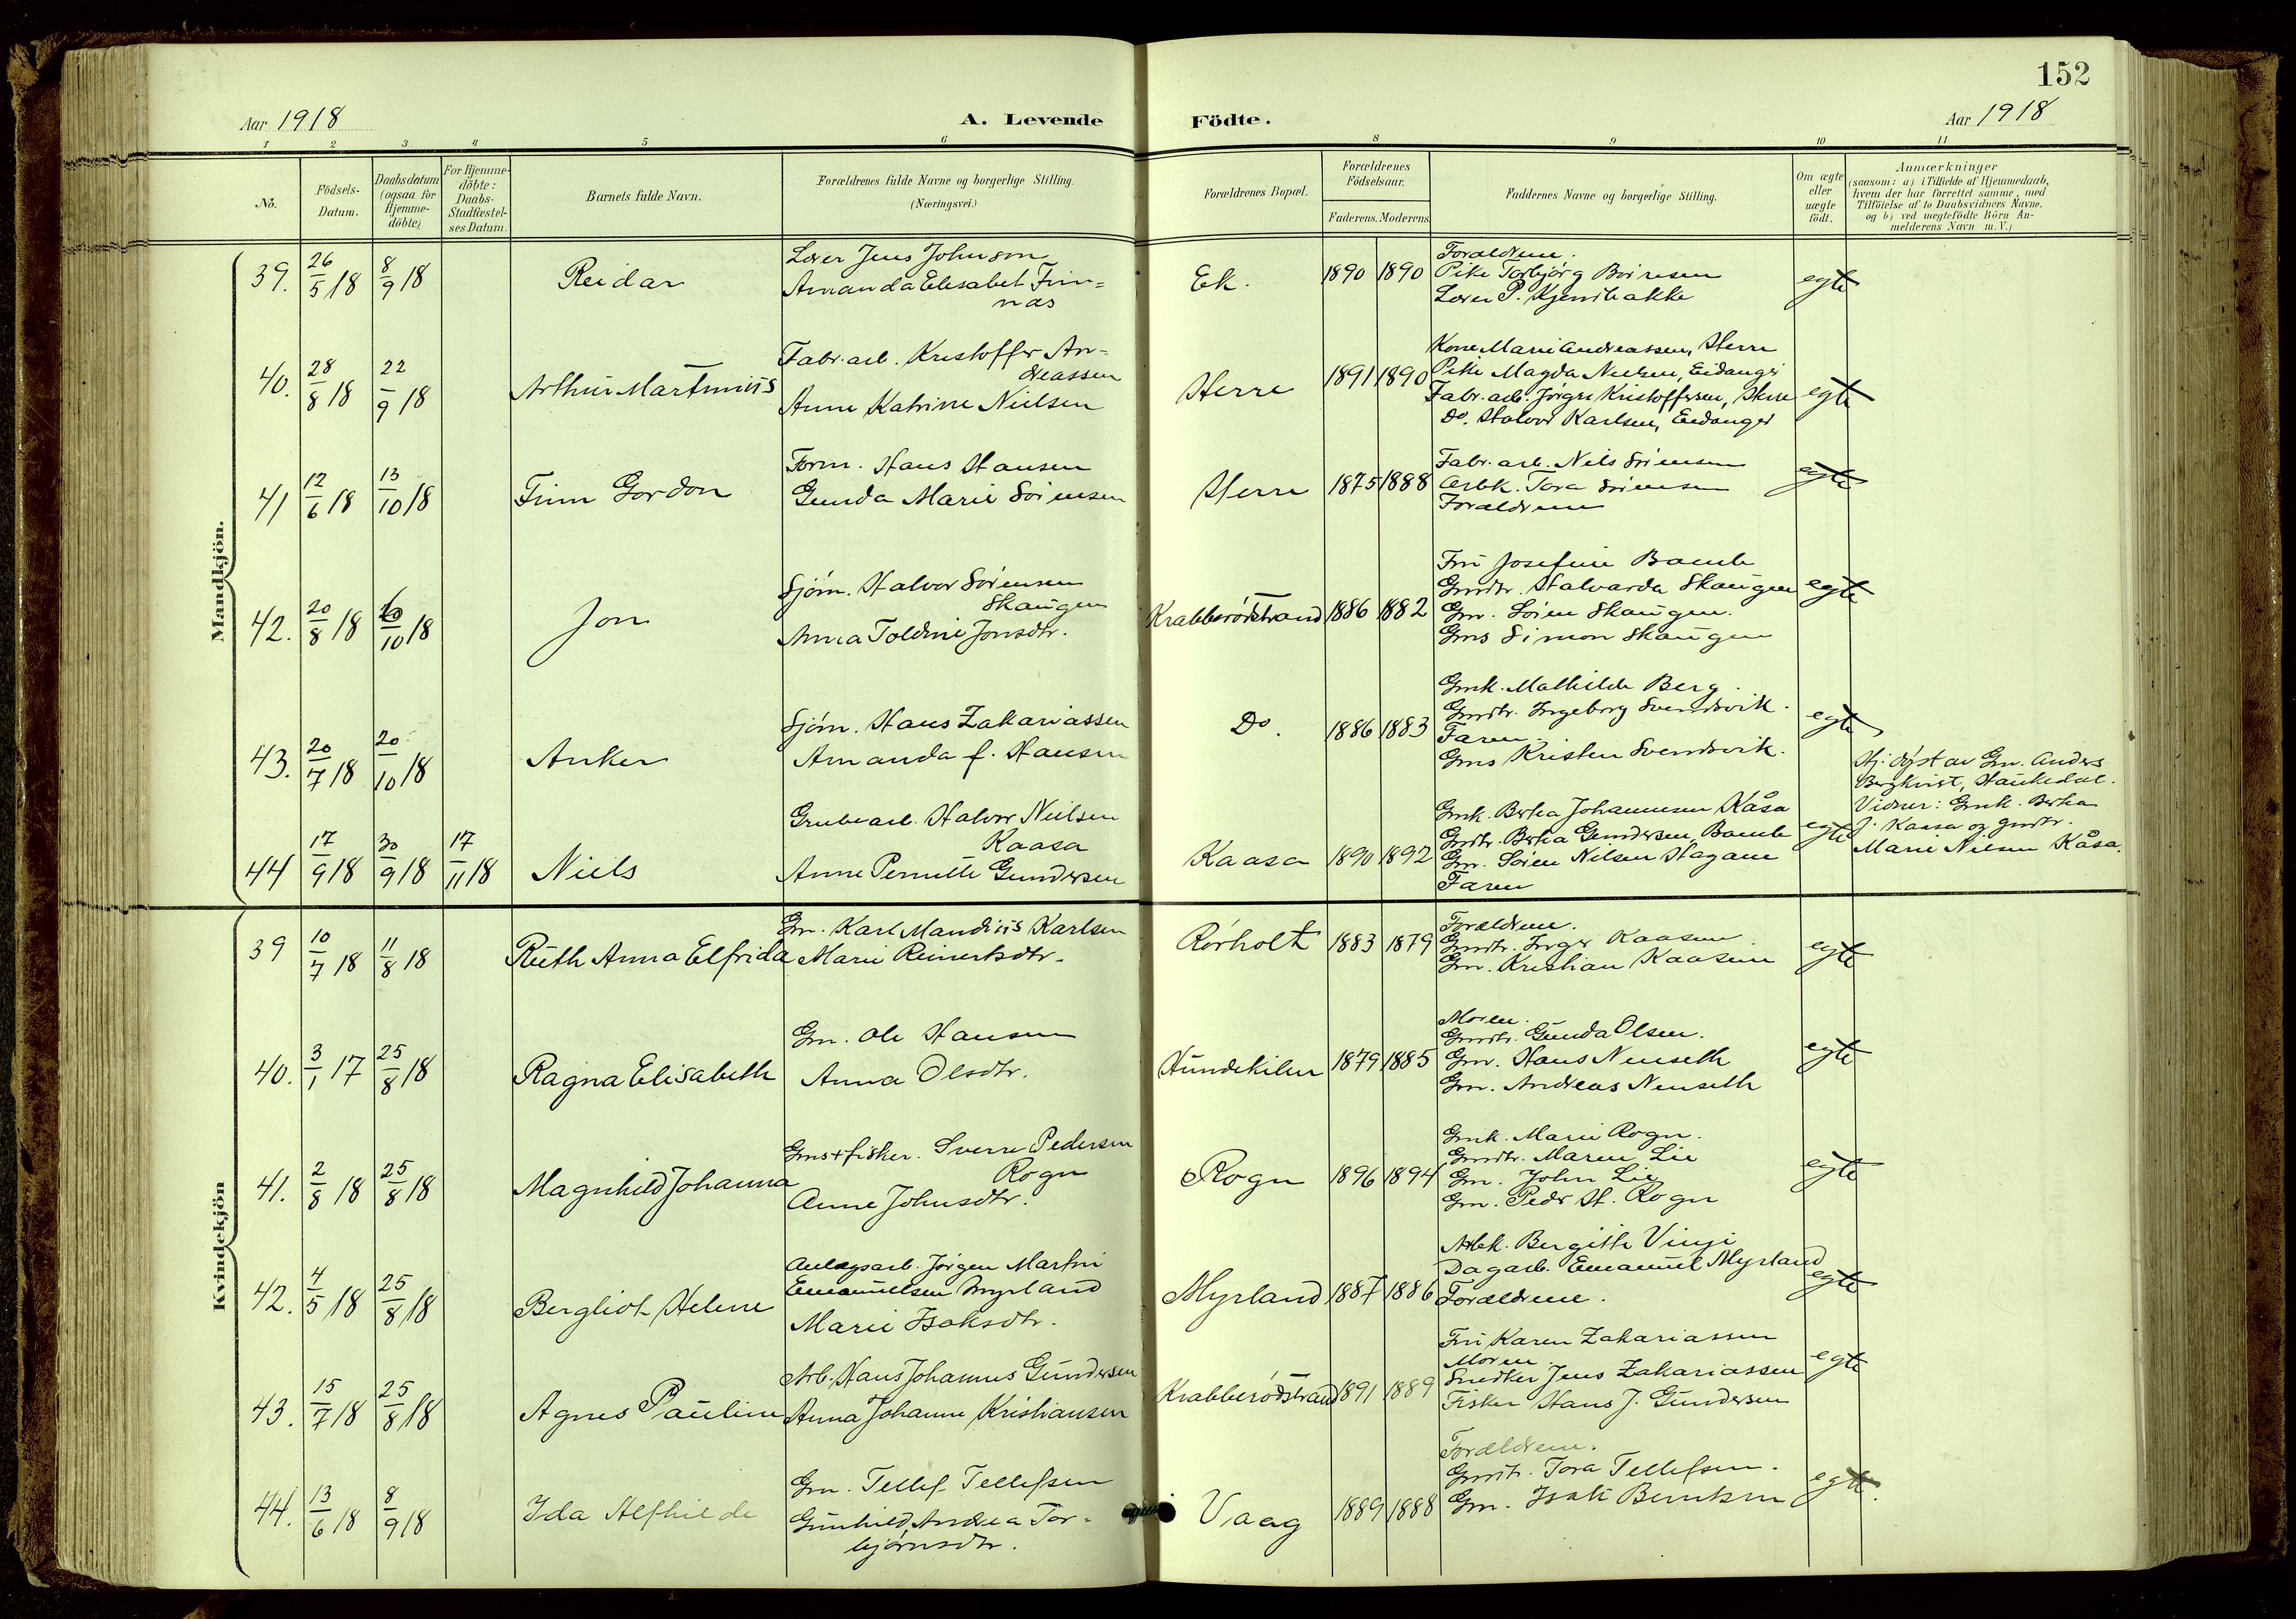 152
Aar 1918
A. Levende Födte.
Aar 1918
1 2 3 4 5 6 8 9 10 11
No.
Födsels-
Datum.
Daabsdatum
(ogsaa for
Hjemme-
döbte)
For Hjemme-
döbte:
Daabs-
Stadfæstel-
ses Datum.
Barnets fulde Navn.
Forældrenes fulde Navne og borgerlige Stilling.
(Næringsvei.)
Forældrenes Bopæl.
Forældrenes
Födselsaar.
Faderens. Moderens.
Faddernes Navne og borgerlige Stilling.
Om ægte
eller
uægte
födt.
Anmærkninger
(saasom: a) i Tilfælde af Hjemmedaab,
hvem der har forrettet samme, med
Tilföielse af to Daabsvidners Navne.
og b) ved uægtefödte Börn An-
melderens Navn m. V.)
Mandkjön.
39. 26/5 18 8/9 18 Reidar
Lærer Jens Johnsen
Amanda Elisabet Finn=
næs
Ek. 1890 1890
Forældrene.
Pike Torbjørg
Lærer P.
egte
40. 28/8 18 22/9 18 Arthur Martinius
Fabr. arb. Kristoffer An=
dreassen
Anne Katrine Nielsen
Herre 1891 1890
Kone Marie Andreassen, Herre
Pike Magda Nielsen, Eidanger
Fabr. arb. Jørgen Kristoffersen, Herre
Do. Halvor Karlsen, Eidanger
egte
41 12/6 18 13/10 18 Finn Gordon
Form. Hans Hansen
Gunda Marie Sörensen
Herre 1875 1888
Fabr. arb. Nils Sörensen
Arbk. Tora Sörensen
Forældrene
egte
42. 20/8 18 /10 18 Jon
Sjöm. Halvor Sörensen
Skaugen
Anna Toldine Jonsdtr.
Krabberödstrand 1886 1882
Fru Josefine Bamble
Gmdtr. Halvarda Skaugen
Gm. Sören Skaugen.
Gms Simon Skaugen
egte
43. 20/7 18 20/10 18 Anker
Sjöm. Hans Zakariassen
Amanda f. Hansen
Do. 1886 1883
Gmk. Mathilde Berg.
Gmdtr. Ingeborg Svendsvik.
Faren.
Gms Kristen Svendsvik.
egte
44 17/9 18 30/9 18 17/11 18 Niels
Grubearb. Halvor Nielsen
Kaasa
Anne Pernille Gundersen
Kaasa 1890 1892
Gmk. Berta Johannesen Kåsa
Gmdtr. Berta Gundersen, Bamble
Gm. Sören Nilsen Hagane
Faren
egte
Hj. döpt av Gm. Anders
Bergkvist, Haukedal.
Vidner: Gmk. Berta
J. Kaasa og gmdtr.
Marie Nielsen Kåsa.
Kvindekjön
39 10/7 18 11/8 18 Ruth Anna Elfrida
Gm. Karl Mandius Karlsen
Marie Reinertsdtr.
Rörholt 1883 1879
Forældrene.
Gmdtr. Inger Kaasene
Gm. Kristian Kaasene
egte
40. 3/1 17 25/8 18 Ragna Elisabeth
Gm. Ole Hansen
Anna Olsdtr.
Hundekilen 1879 1885
Moren.
Gmdtr. Gunda Olsen.
Gm. Hans Nenseth
Gm. Andreas Nenseth
egte
41. 2/8 18 25/8 18 Magnhild Johanna
Gms + fisker. Sverre Pedersen
Rogn
Anne Johnsdtr.
Rogn 1896 1894
Gmk. Marie Rogn.
Gmdtr. Maren Lie
Gm. John Lie
Gm. Peder H. Rogn
egte
42. 4/5 18 25/8 18 Bergliot Helene
Anlægsarb. Jörgen Martin
Emanuelsen Myrland
Marie Isaksdtr.
Myrland 1887 1886
Arbk. Bergitte Vinje
Dagarb. Emanuel Myrland
Forældrene.
egte
43. 15/7 18 25/8 18 Agnes Pauline
Arb. Hans Johannes Gundersen
Anna Johanne Kristiansen
Krabberödstrand 1891 1889
Fru Karen Zakariassen
Moren.
Snedker Jens Zakariassen
Fisker Hans J. Gundersen
egte
44. 13/6 18 8/9 18 Ida Alfhilde
Gm. Tellef Tellefsen
Gunhild Andrea Tor=
björnsdtr.
Vaag 1889 1888
Forældrene.
Gmdtr. Tora Tellefsen.
Gm. Isak Berntsen
egte.